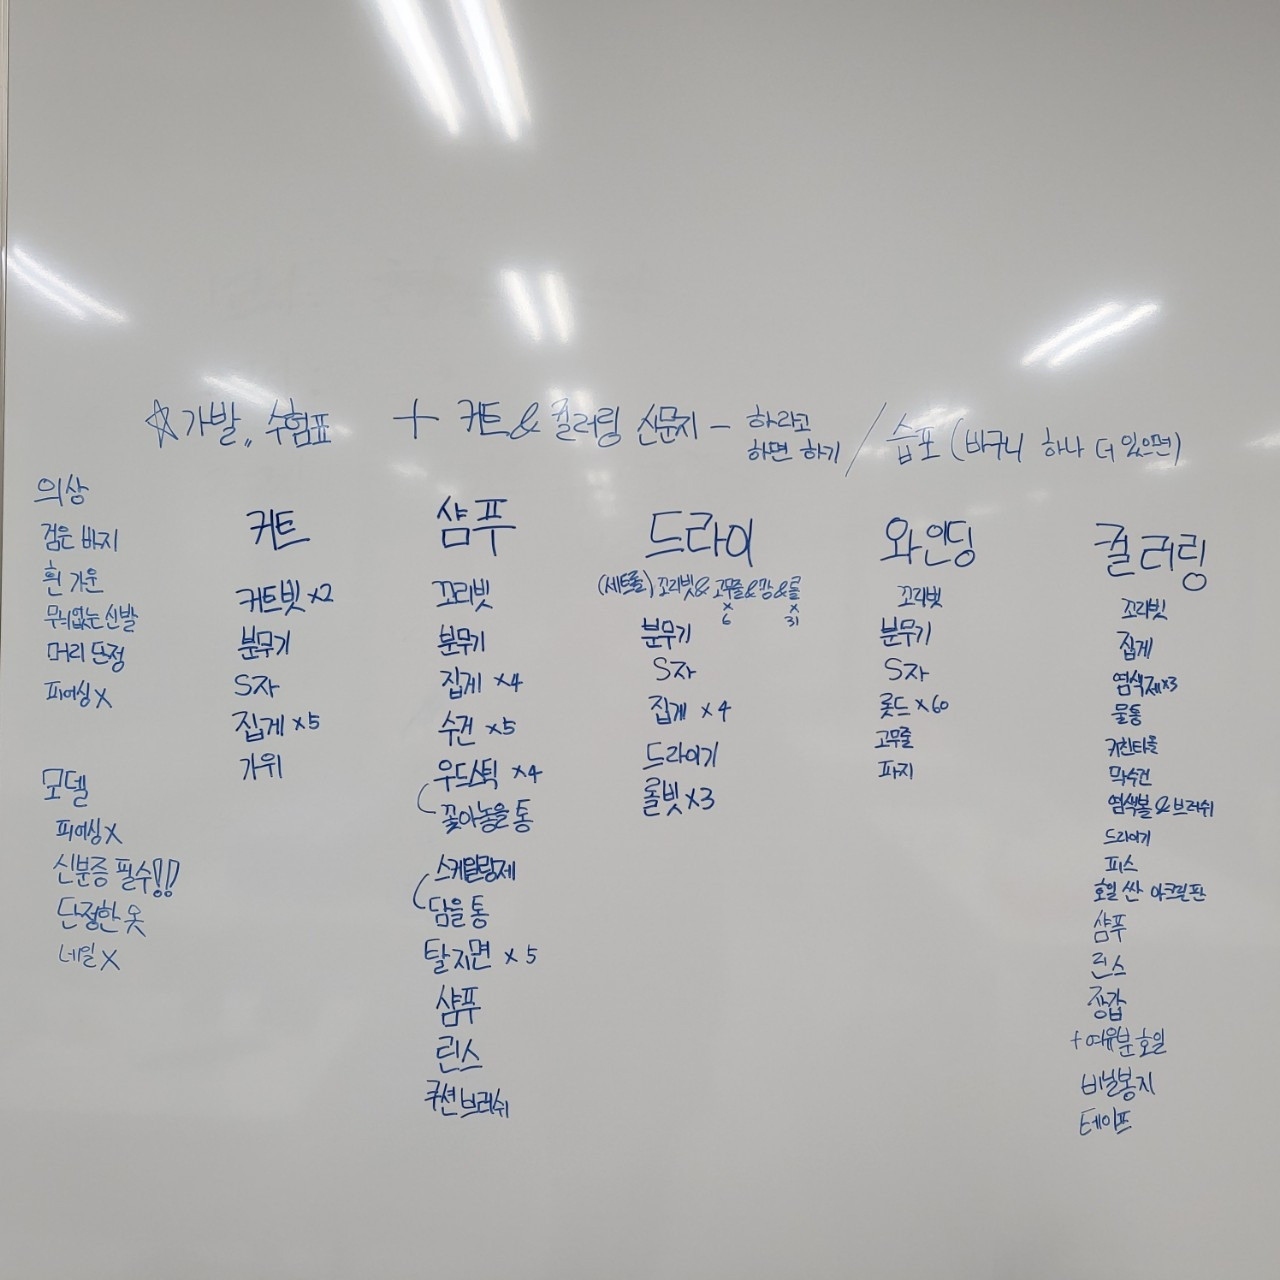 ☆가발,, 수험표 + 커트 & 컬러링 신문지 - 하라고 하면 하기 / 습포 (바구니 하나 더 있으면)
의상
검은 바지
흰 가운
무늬없는 신발
머리 단정
피어싱 X
모델
피어싱 X
신분증 필수!!
단정한 옷
네일 X
커트
커트빗 x2
분무기
S자
집게 x5
가위
샴푸
꼬리빗
분무기
집게 x4
수건 x5
우드스틱 x4
꽂아놓을 통
스케일링제
담을 통
탈지면 x 5
샴푸
린스
쿠션브러쉬
드라이
(세트롤) 꼬리빗 & 고무줄 & 망 & 롤
x 6 x 31
분무기
S자
집게 x 4
드라이기
롤빗 x3
와인딩
꼬리빗
분무기
S자
롯드 x 60
고무줄
파지
컬러링
꼬리빗
집게
염색제 x3
물통
키친타올
막수건
염색볼 & 브러쉬
드라이기
피스
호일 싼 아크릴판
샴푸
린스
장갑
+ 여유분 호일
비닐봉지
테이프